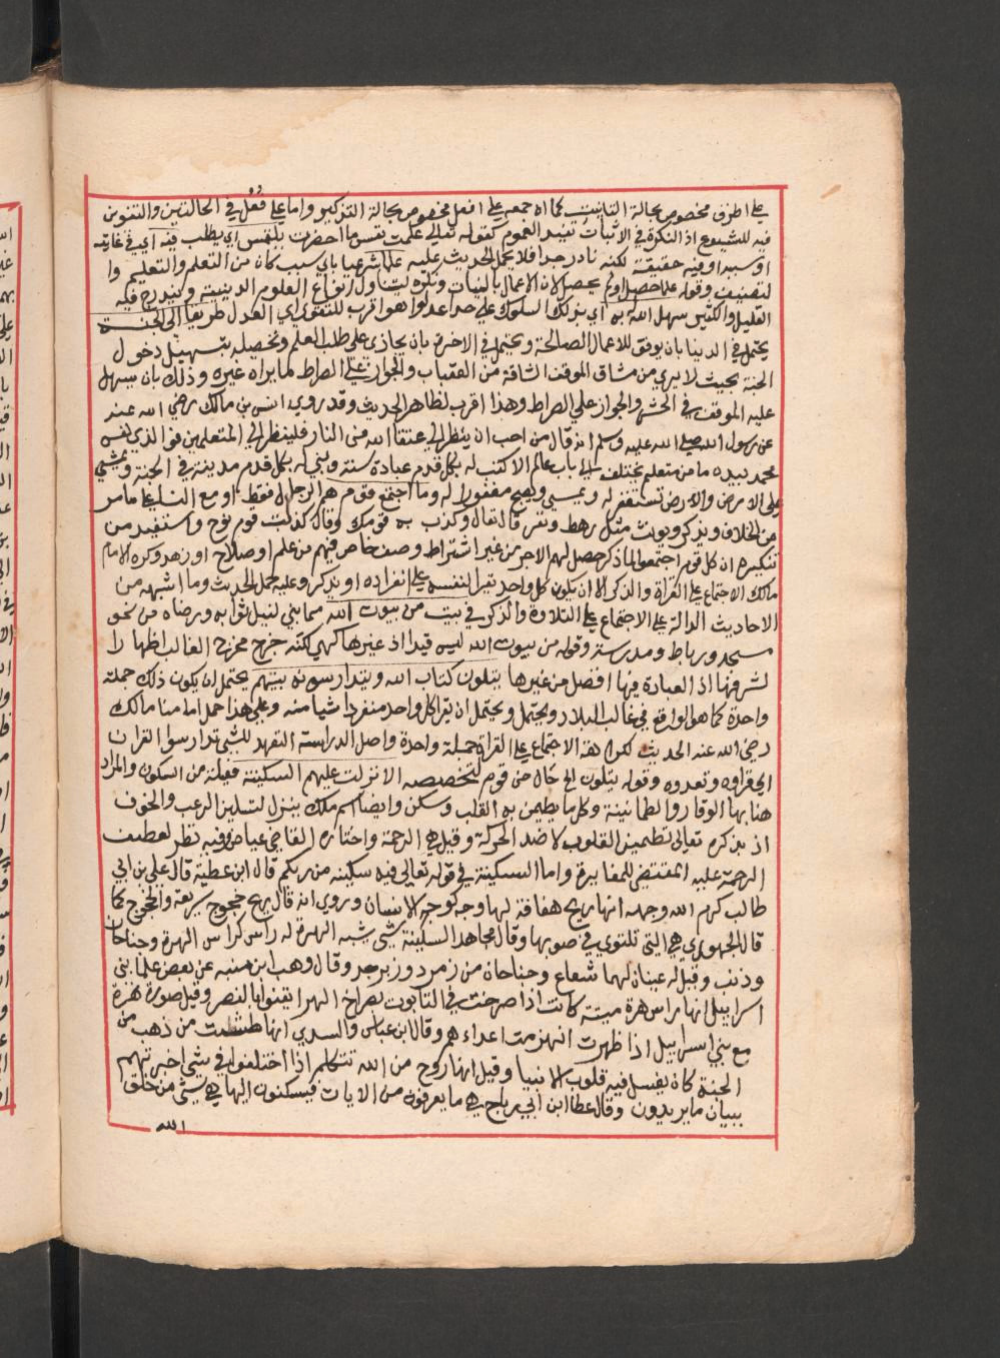 علي اطرق مخصوص بحالة التانيث كما ان جمعه علي افعل مخصوص بحالة التذكير واما علي فعل في الحالتين والتنوين
فيه للشيوع اذ النكرة في الاثبات تفيد العموم كقوله تعالي علمت نفس ما احضرت يلتمس اي يطلب فيه اي في غايته
او سببه او فيه حقيقة لكنه نادر جدا فلا يحمل الحديث عليه علما شرعيا باي سبب كان من التعلم والتعليم وا
لتصنيف وقوله علما حصل اولم يحصل لان الاعمال بالنيات ونكره ليتناول انواع العلوم الدينية ويندرج فيه
القليل والكثير سهل الله به اي بذلك السلوك علي حد اعدلوا هو اقرب للتقوي اي العدل طريقا الي الجنة
يحتمل في الدنيا بان يوفق للاعمال الصالحة ويحتمل في الاخرة بان يجازي علي طلب العلم وتحصيله بتسهيل دخول
الجنة بحيث لا يري من مشاق الموقف الشاقة من العقبات والجواز علي الصراط لما يراه غيره وذلك بان يسهل
عليه الموقف في الحشر والجواز علي الصراط وهذا اقرب لظاهر الحديث وقد روي انس بن مالك رضي الله عنه
عن رسول الله صلي الله عليه وسلم انه قال من احب ان ينظر الي عتقا الله من النار فلينظر الي المتعلمين فوالذي نفس
محمد بيده ما من متعلم يختلف الي باب عالم الا كتب له بكل قدم عبادة سنة وبني له بكل قدم مدينة في الجنة ويمشي
علي الارض والارض تستغفر له ويمسي ويصبح مغفورا له وما اجتمع قوم هم الرجال فقط او مع النسا علي ما مر
من الخلاف ويذكر ويونث مثل رهط ونفر قال تعالي وكذب به قومك وقال كذبت قوم نوح واستفيد من
تنكيره ان كل قوم اجتمعوا لما ذكر حصل لهم الاجر من غير اشتراط وصف خاص فيهم من علم او صلاح او زهد وكره الامام
مالك الاجتماع علي القراة والذكر الا ان يكون كل واحد يقرا لنفسه علي انفراده او يذكر وعليه حمل الحديث وما اشبهه من
الاحاديث الدالة علي الاجتماع علي التلاوة والذكر في بيت من بيوت الله مما بني لنيل ثوابه ورضاه من نحو
مسجد ورباط ومدرسة وقوله من بيوت الله ليس قيدا اذ غيرها كهي لكنه خرج مخرج الغالب اظهارا
لشرفها اذ العبادة فيها افضل من غيرها يتلون كتاب الله ويتدارسونه بينهم يحتمل ان يكون ذلك جملة
واحدة كما هو الواقع في غالب البلاد ويحتمل ان يقرا كل واحد منفردا شيا منه وعلي هذا حمل امامنا مالك
رضي الله عنه الحديث لكراهة الاجتماع علي القراة جملة واحدة واصل الدراسة التعهد للشي تدارسوا القران
اي قراوه وتعدوه وقوله يتلون الخ حال من قوم لتخصيصه الا نزلت عليهم السكينة فعيلة من السكون والمراد
هنا بها الوقار والطمانينة وكل ما يطمين به القلب وسكن وايضا اسم ملك ينزل لتسلية الرعب والخوف
اذ بذكره تعالي تطمين القلوب لا ضد الحركة وقيل هي الرحمة واختاره القاضي عياض وفيه نظر لعطف
الرحمة عليه المقتضي للمغايرة واما السكينة في قوله تعالي فيه سكينة من ربكم قال ابن عطية قال علي بن ابي
طالب كرم الله وجهه انها ريح هفافة لها وجه كوجه الانسان وروي انه قال ريح خجوج سريعة والخجوج كما
قال الجوهري هي التي تلتوي في صوبها وقال مجاهد السكينة شي شبه الهرة له راس كراس الهرة وجناحان
وذنب وقيل له عينان لهما شعاع وجناحان من زمرد وزبرجد وقال وهب ابن منبه عن بعض علما بني
اسراييل انها راس هرة ميتة كانت اذا صرخت في التابوت بصراخ الهر ايقنوا بالنصر وقيل صورة هرة
مع بني اسراييل اذا ظهرت انهزمت اعداءهم وقال ابن عباس والسدي انها طشت من ذهب من
الجنة كان يغسل فيه قلوب الانبيا وقيل انها روح من الله تتكلم اذا اختلفوا في شي اخبرتهم
ببيان ما يريدون وقال عطا ابن ابي رباح هي ما يعرفون من الايات فيسكنون اليها هي شي من خلق
الله